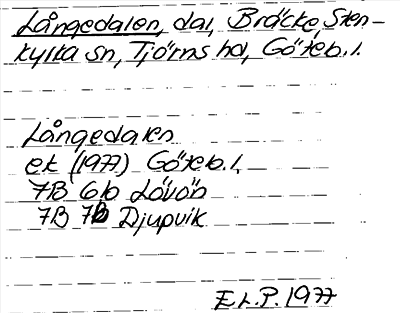 Långedalen, dal, Bräcke, Sten-
kyrka sn, Tjörns hd, Göteb. l.
Långedalen
ek (1977) Göteb. l,
7B 6b Lövön
7B 7b Djupvik
E L.P. 1977